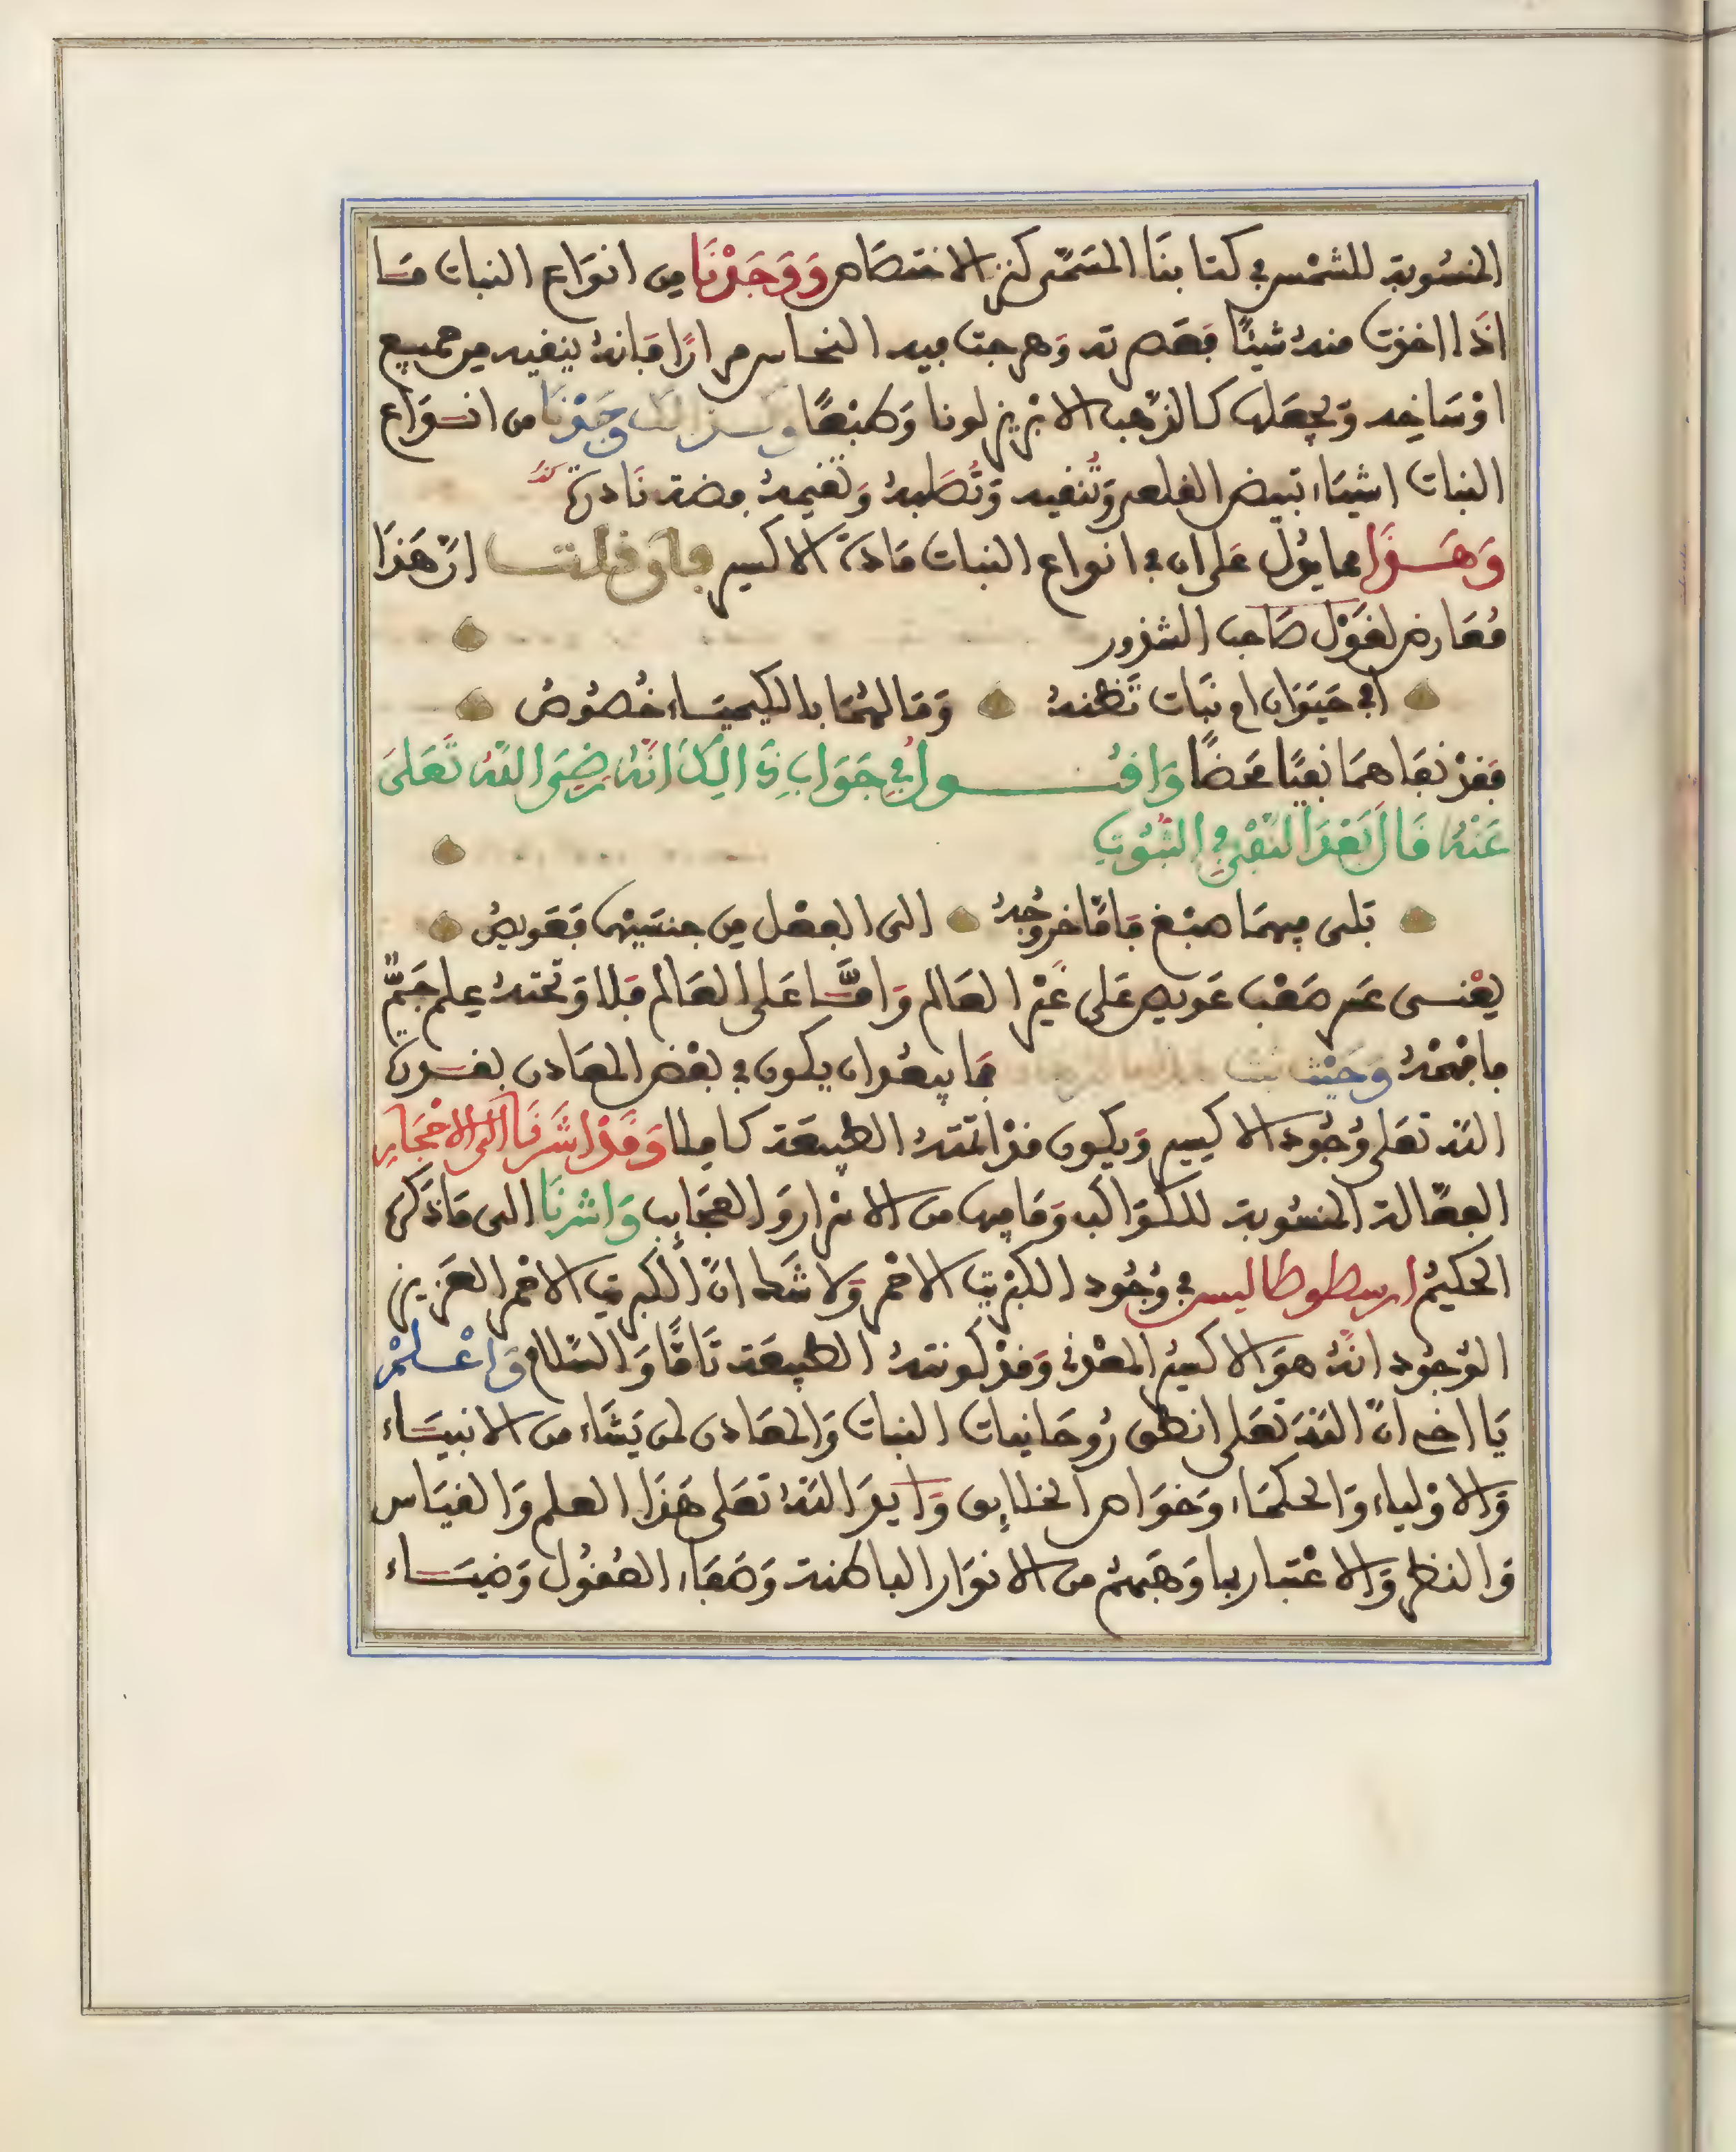 المنسُوبة للشمْس في كتابنَا المسَمّى كنز الاختصَاص وَوَجَدْنَا مِن انوَاع النبات مَا
اذَا اخذت منهُ شيئًا فعَصرته وَمزجت فيه النحاس مرارًا فإنهُ ينقيه من جميع
اوْسَاخِه وَيجعَله كالذهب الابريز لونا وَصبْغًا وكذالك وجَدْنَا من انوَاع
النبات اشيَاء تبيض القلعي وَتُنقيه وَتُصَلبهُ وَتقيمهُ فضة نَادرة
وَهَذَا مما يدُل عَلى ان في انواع النبات مَادة الاكسير فإن قلت انّ هَذَا
مُعَارض لقوْل صَاحب الشذور
افي حيَوَان ام نبَات تَظنهُ وَمَا لهُمَا بالكيميَاء خُصُوصُ
فقدْ نفَاهمَا نفيًا محَضًا وَاقُول في جَوَابِ ذَالِكَ أنّهُ رضِيَ اللّهُ تَعَلى
عَنْهُ قَالَ بَعْدَ النّفْيِ في الثبُوتِ
بَلى فيهمَا صبْغ فامّا خروُجهُ الى الفعْل مِن جنسَيْهمَا فعَويصُ
يعْنى عسر صَعْب عَويص عَلى غيْر العَالم وَامَّا عَلى العَالم فلا وَتحتهُ عِلم جَمٌّ
فافهَمْهُ وَحَيْث فما يبعُد ان يكون في بعْض المعَادن بقدرة
اللّه تعَلى وُجُود الاكسير وَيكون قدْ اتمّتهُ الطبيعَة كاملا وَقَدْ اشَرنَا الى الاحْجَارِ
الفعّالة المنسُوبة للكوَاكب وَمَا فيها من الاسْرار وَالعجَايب وَاشرنَا الى مَا ذكرهُ
الحكيمُ ارسطوطاليس في وُجُود الكبْريت الاحْمر وَلا شَك انّ الكبريت الاحْمر العَزيز
الوُجُود انّهُ هوَ الاكسيرُ المعْدني وَقدْ كونتهُ الطبيعَة تَامًّا وَالسّلام وَاعْلَمْ
يَا اخي انّ اللّهَ تعَلى انطق رُوحَانيات النبات وَالمعَادن لمن يَشَاء من الانبيَاء
وَالاوْلياء وَالحكمَاء وَخوَاص الخلايق وَايدَ اللّهُ تعَلى هَذَا العلم وَالقيَاس
وَالنظر وَالاعْتبار بما وَهَبهُمْ من الانوَار الباطنة وَصَفَاء العُقُول وَضيَاء